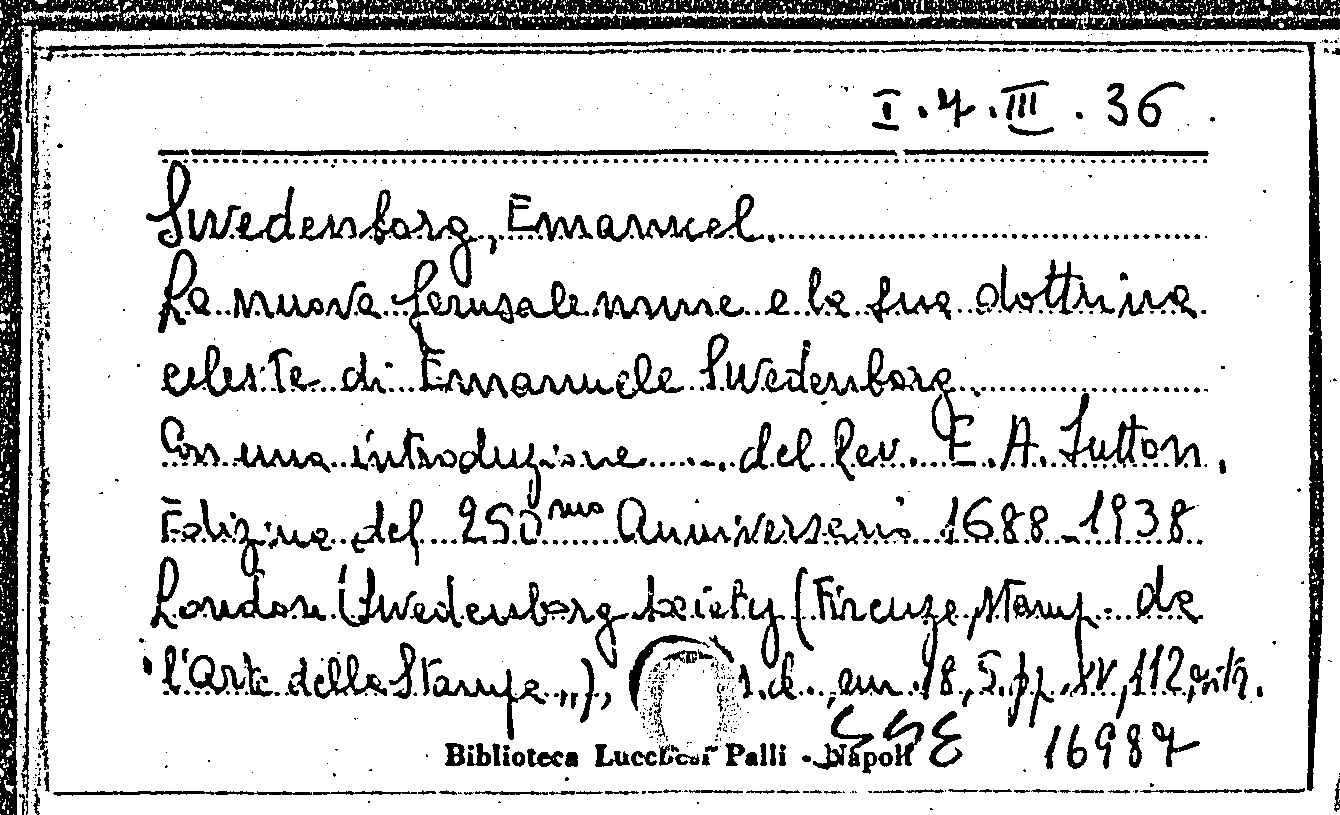 I.7.III.36
Swedenborg, Emanuel.
La nuova Gerusalemme e la sua dottrina
celeste di Emanuele Swedenborg.
Con una introduzione .... del Rev. E. A. Sutton.
Edizine del 250mo Anniversario 1688-1938
London (Swedenborg Society (Firenze, Stamp. de
"l'Arte della Stampa"), s.d., cm. 18,5. pp. XV, 112,
16987
Biblioteca Lucchesi Palli - Napoli